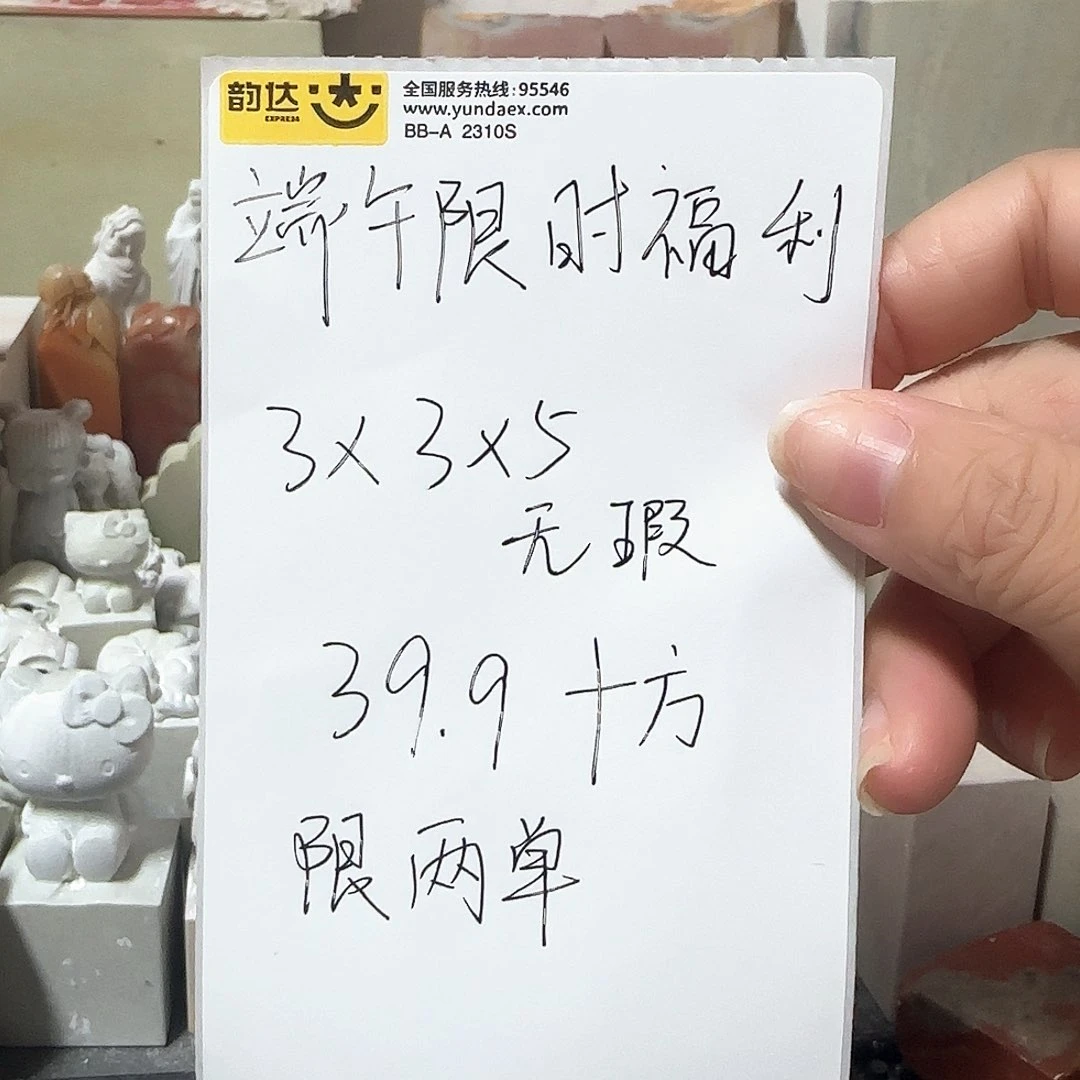 韵达
EXPRESS
全国服务热线:95546
www.yundaex.com
BB-A 2310S
端午限时福利
3×3×5
无瑕
39.9 十方
限两单